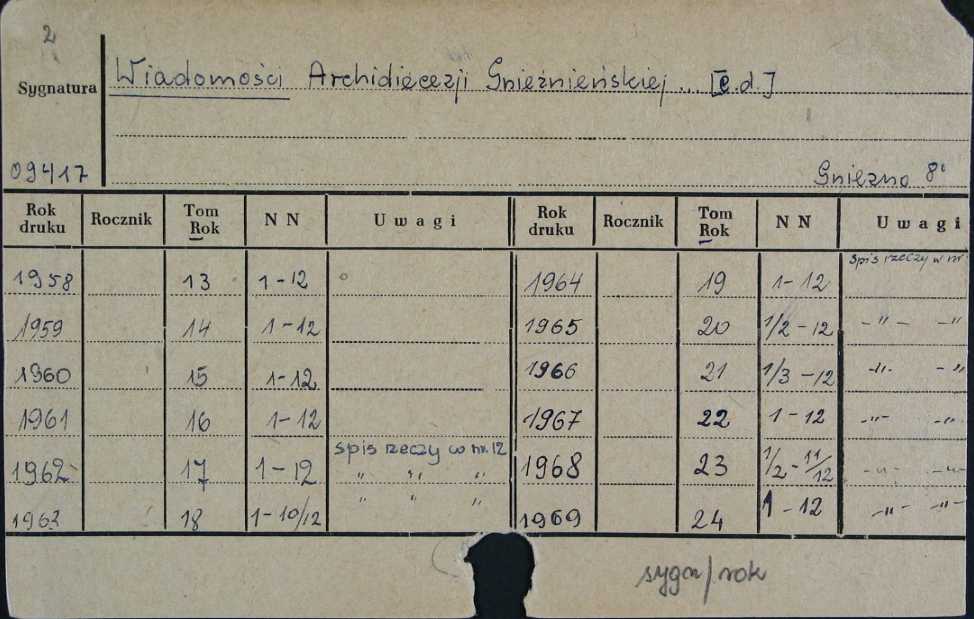 2
Sygnatura
Wiadomości Archidiecezji Gnieźnieńskiej ... [c.d.]
09417
Gniezno 8°
Rok druku Rocznik Tom Rok N N Uwagi Rok druku Rocznik Tom Rok N N Uwagi
1958 13 1-12 1964 19 1-12 spis rzeczy w nr
1959 14 1-12 1965 20 1/2-12 -"- -"
1960 15 1-12 1966 21 1/3-12 -"- -"
1961 16 1-12 1967 22 1-12 -"- -"
1962 17 1-12 spis rzeczy w nr. 12 1968 23 1/2-11/12 -"- -"-
" " "
1963 18 1-10/12 " " " 1969 24 1-12 -"- -"-
sygn/rok